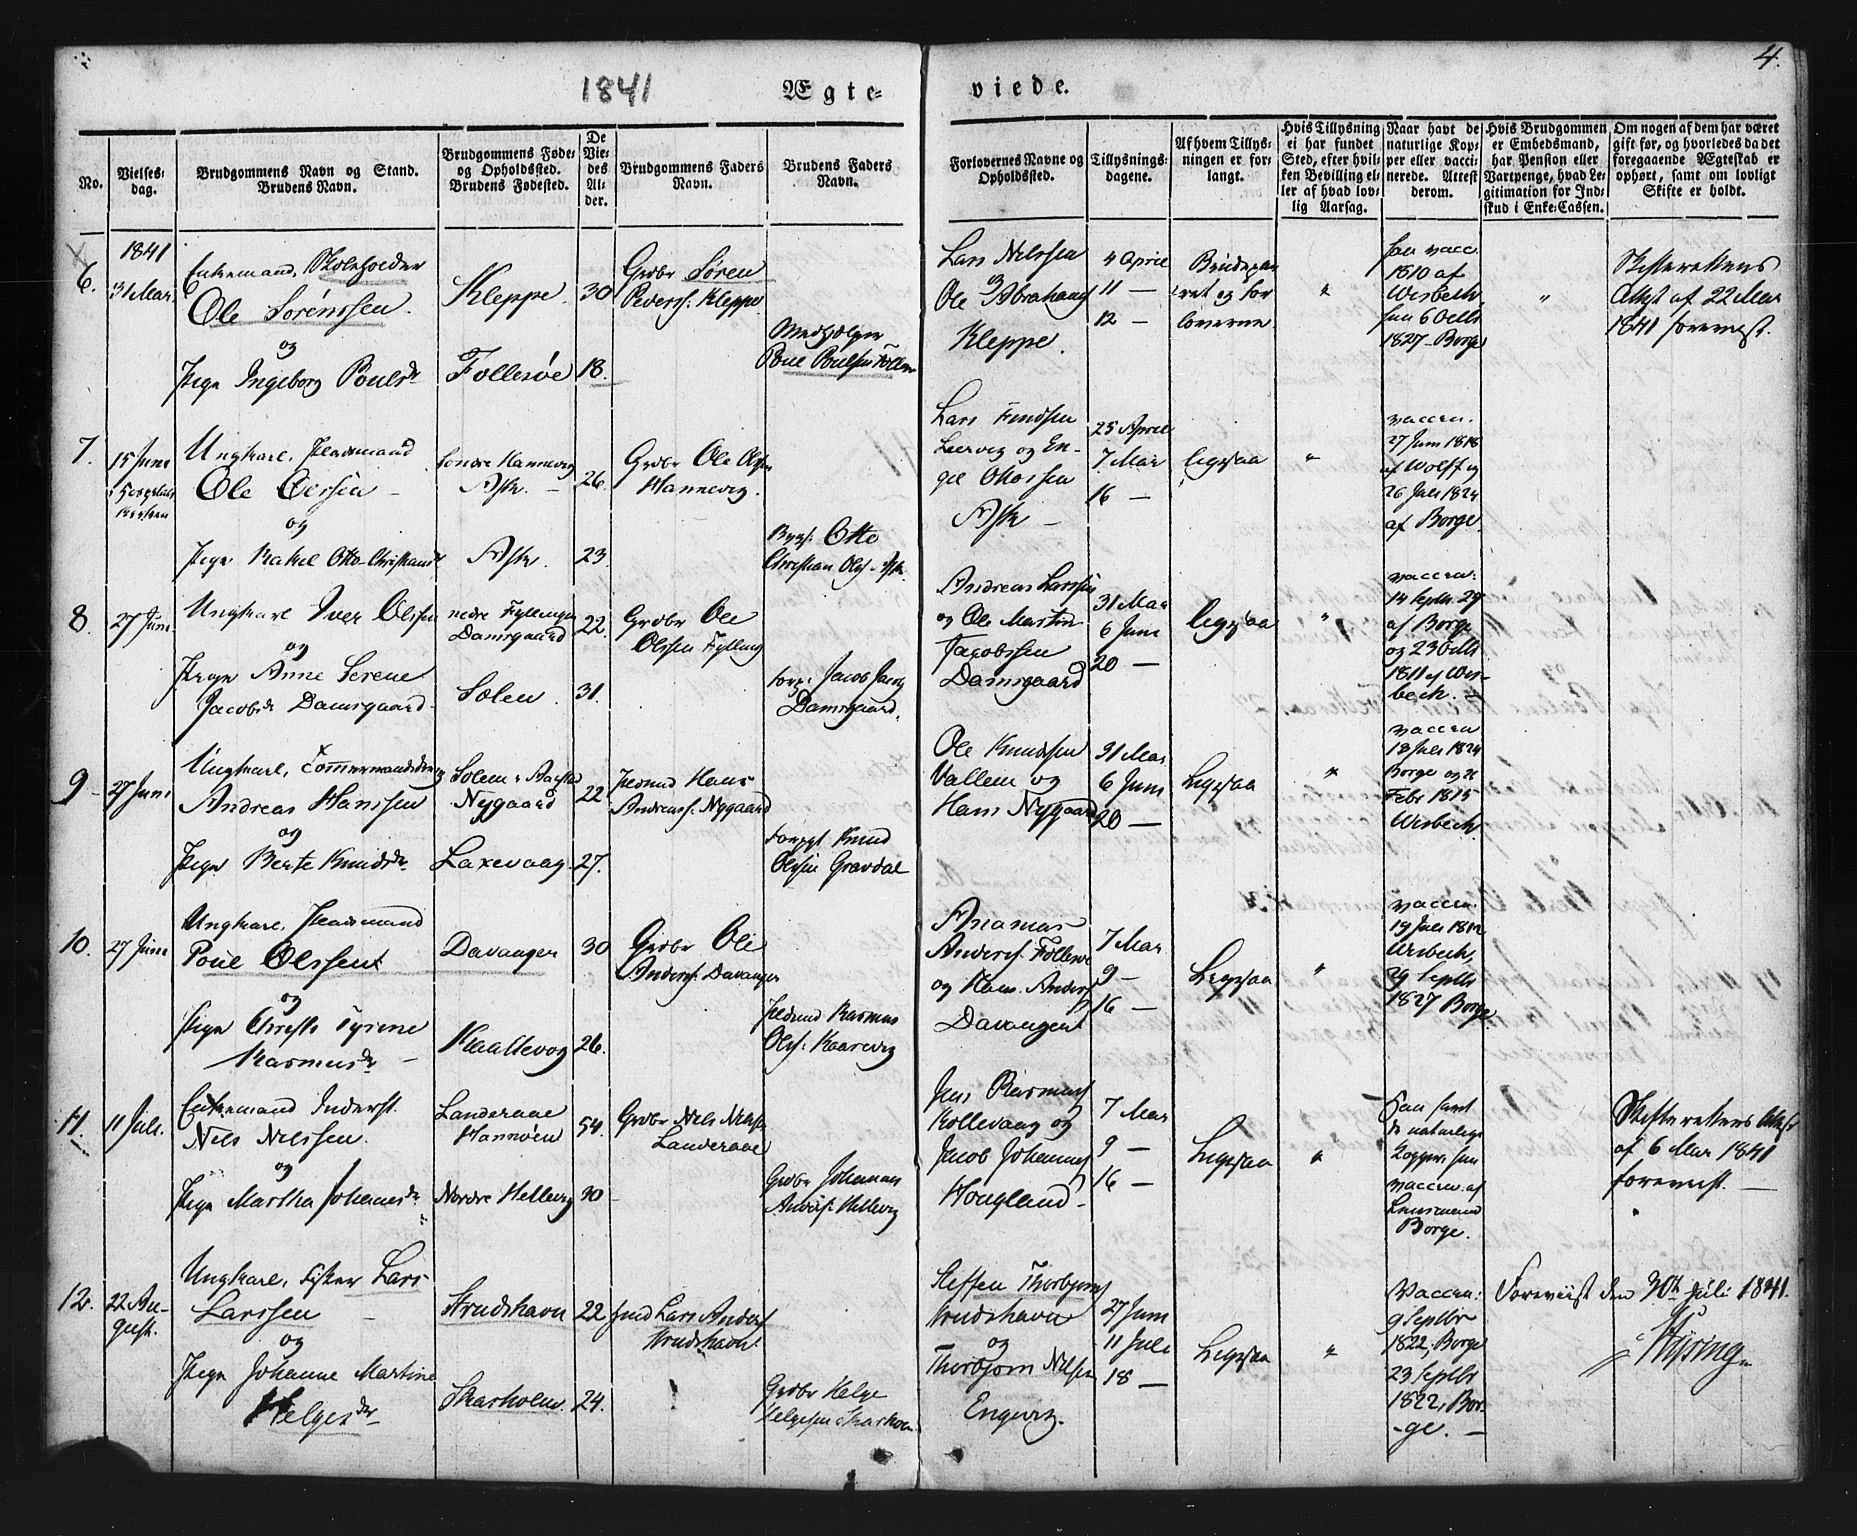 4.
1841
Ægte-
viede.
No.
Vielses-
dag.
Brudgommens Navn og Stand.
Brudens Navn.
Brudgommens Føde-
og Opholdssted.
Brudens Fødested.
De
Vie-
des
Al-
der.
Brudgommens Faders
Navn.
Brudens Faders
Navn.
Forlovernes Navne og
Opholdssted.
Tillysnings-
dagene.
Af hvem Tillys-
ningen er for-
langt.
Hvis Tillysning
ei har fundet
Sted, efter hvil-
ken Bevilling el-
ler af hvad lov-
lig Aarsag.
Naar havt de
naturlige Kop-
per eller vacci-
nerede. Attest
derom.
Hvis Brudgommen
er Embedsmand,
har Pension eller
Vartpenge, hvad Le-
gitimation for Ind-
skud i Enke-Cassen.
Om nogen af dem har været
gift før, og hvorledes da det
foregaaende Ægteskab er
ophørt, samt om lovligt
Skifte er holdt.
6.
1841
31 Mai
Enkemand, Skoleholder
Ole Sørenssen.
og
Pige Ingeborg Poulsdr
Kleppe.
Follesøe
30
18.
Grdbr Søren
Peders: Kleppe
Medhjelper
Poul Poulsen
Lars Nelssen
Ole Abrahams
Kleppe.
4 April
11 —
12 —
ret og for
loverne.
"
han vacc.
1810 af
Wisbech,
hun 6 Octbr
1827 Borge
"
Skifterettens
Attest af 22 Mai
1841 foreviist.
7.
15 Juni
Ungkarl,
Ole Olssen —
og
Pige Rakel Otto-Christians
Søndre Hannevig
Ask. —
Ask.
26.
23.
Grdbr Ole Olssen
Hannevig.
Otto
Christian Ols: Ask.
Lars
Leervig og En-
gel Ottossen
Ask —
25 April
7 Mai
16 —
ligesaa
"
vaccin.
27 Juni 1818
af Wolff og
26 Juli 1824
af Borge.
8.
27 Juni.
Ungkarl Iver Olssen
og
Pige Anne Serene
Jacobsdr Damsgaard
nedre Fyllingen
Damsgaard
Solen.
22.
31.
Grdbr Ole
Olssen Fylling
Jacob
Damsgaard.
Andreas Larssen
og Ole Martin
Jacobssen
Damsgaard
31 Mai
6 Juni
20 —
ligesaa
"
vaccin.
14 Septbr 29
af Borge
og 23 Octbr
1811 af Wis-
bech. —
9
27 Juni
Ungkarl,
Andreas Hanssen
og
Pige Berte Knudsdr
Nygaard
Laxevaag.
22
27.
Hans
Andreass: Nygaard
Knud
Olssen Gravdal
Ole Knudssen
Vallem og
Hans Nygaard
31 Mai
6 Juni
20 —
Ligesaa
"
vaccin
18 Juli 1824
Borge og
Febr 1815
Wisbech.
10.
27 Juni
Ungkarl,
Poul Olssen
og
Pige Christi Tyrine
Rasmusdr —
Davanger
Kaaltevog
30
26.
Grdbr Ole
Anders: Davanger
Rasmus
Ols:
Anders: Follesøe
og Hans Anders
Davanger
7 Mai
9 —
16 —
Ligesaa
"
vaccin.
19 Juli 1812
Wisbech,
29 Septbr
1827 Borge
11.
11 Juli.
Enkemand Inderst.
Nels Nelssen.
og
Pige Martha Johannesdr
Landeraae
Hannøen
Nordre Hellevig
54.
30
Grdbr Nels Nelssen
Landeraae
Grdbr Johannes
Anders: Hellevig
Jens Rasmus
Kollevaag og
Jacob Johannes
Hougland
7 Mai
9 —
16 —
Ligesaa
"
han havt
de naturlige
Kopper, hun
vaccin. af
Lensmand
Borge.
Skifterettens Attest
af 6 Mai 1841
foreviist. —
12.
22 Au-
gust.
Ungkarl, Fisker Lars
Larssen —
og
Pige Johanne Martine
Helgesdr
Strudshavn
Skarholm.
22
24.
Lars Anders
Strudshavn
Grdbr Helge
Helgesen Skarholm
Steffen Thorbjørns
Strudshavn
og
Thorbjørn Nelsen
Engevig.
27 Juni
11 Juli
18 —
Ligesaa
"
Vaccin:
9 Septbr
1822, Borge
23 Septbr
1822, Bor-
ge. —
Foreviist den 30te Juli 1841.